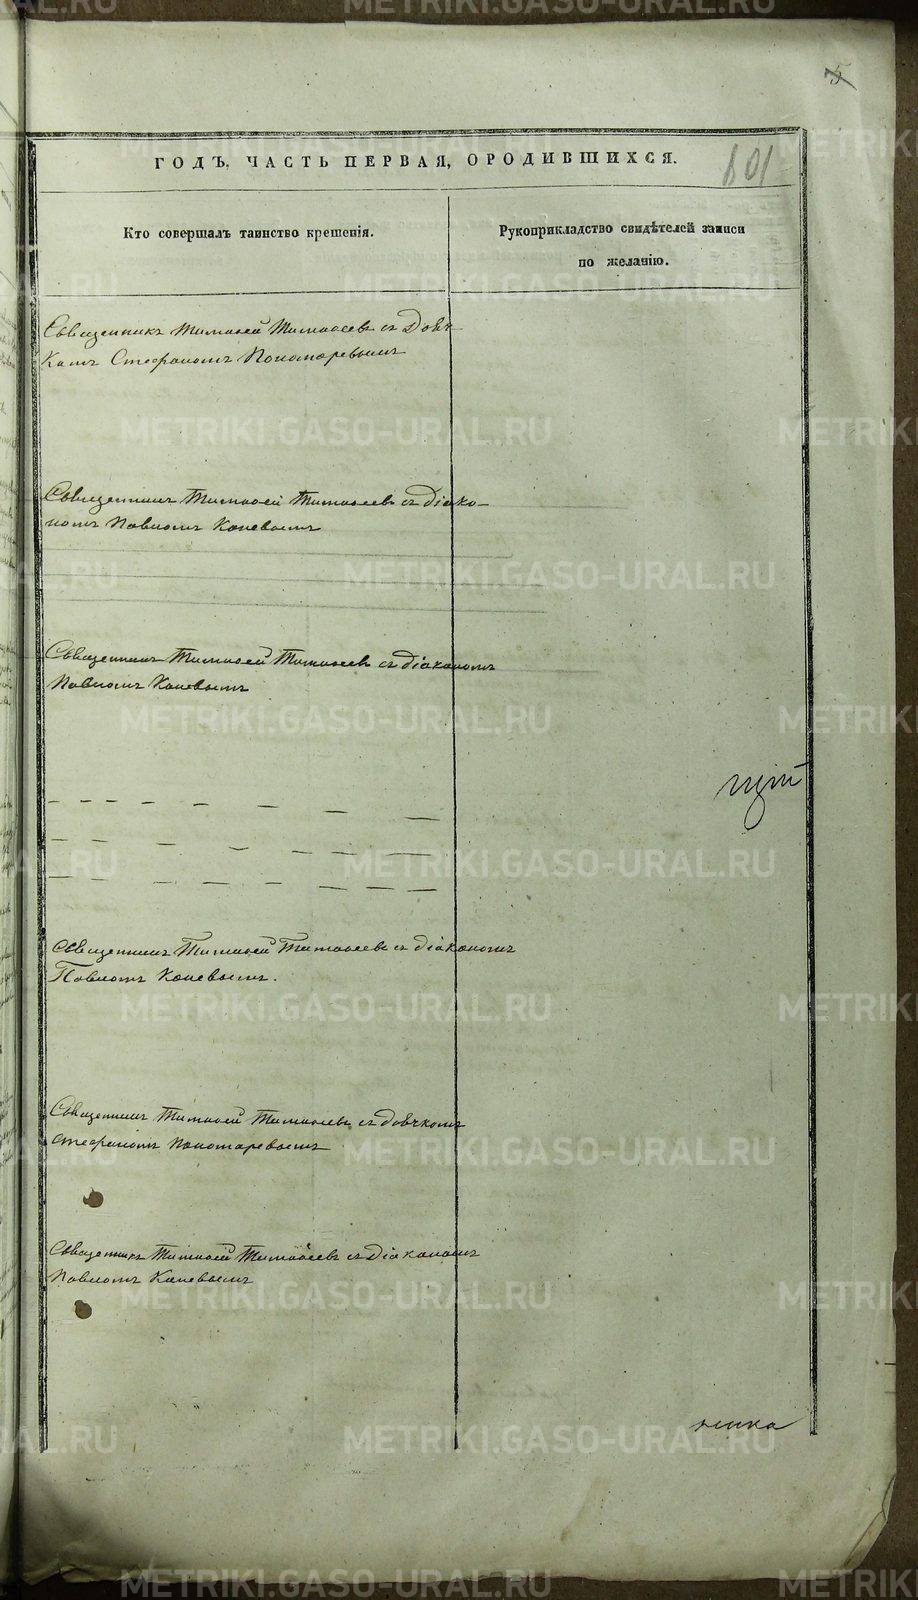 5
ГОДЪ, ЧАСТЬ ПЕРВАЯ, ОРОДИВШИХСЯ.
801
Кто совершалъ таинство крещенія.
Рукоприкладство свидѣтелей записи
по желанію.
Священникъ Тимоѳей Тимоѳеевъ съ Дьяч-
комъ Стефаномъ Пономаревымъ
Священникъ Тимоѳей Тимоѳеевъ съ Діако-
номъ Павломъ Коневымъ
Священникъ Тимоѳей Тимоѳеевъ съ Діакономъ
Павломъ Коневымъ
Священникъ Тимоѳей Тимоѳеевъ съ Діакономъ
Павломъ Коневымъ.
Священникъ Тимоѳей Тимоѳеевъ съ Дьячкомъ
Стефаномъ Пономаревымъ
Священникъ Тимоѳей Тимоѳеевъ съ Діакономъ
Павломъ Коневымъ
METRIKI.GASO-URAL.RU